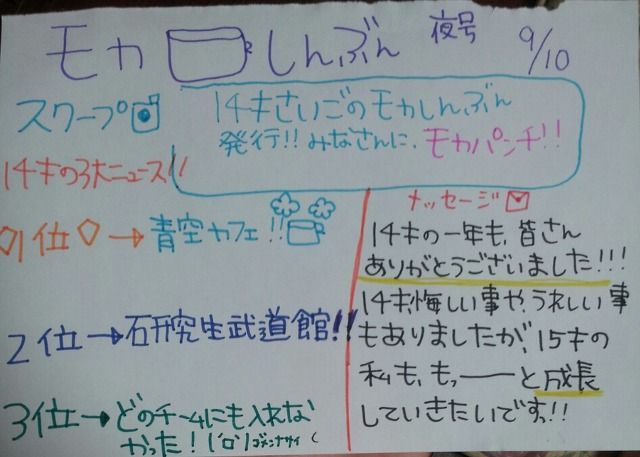 モカ しんぶん 夜号 9/10
スクープ
14才さいごのモカしんぶん
発行!! みなさんに、モカパンチ!!
14才の3大ニュース!!
1位 → 青空カフェ!!
2位 → 研究生武道館!!
3位 → どのチームにも入れな
かった!(´ロ`)ゴメンナサイ(
メッセージ
14才の一年も、皆さん
ありがとうございました!!!
14才、悔しい事や、うれしい事
もありましたが、15才の
私も、もっーーーと成長
していきたいですっ!!